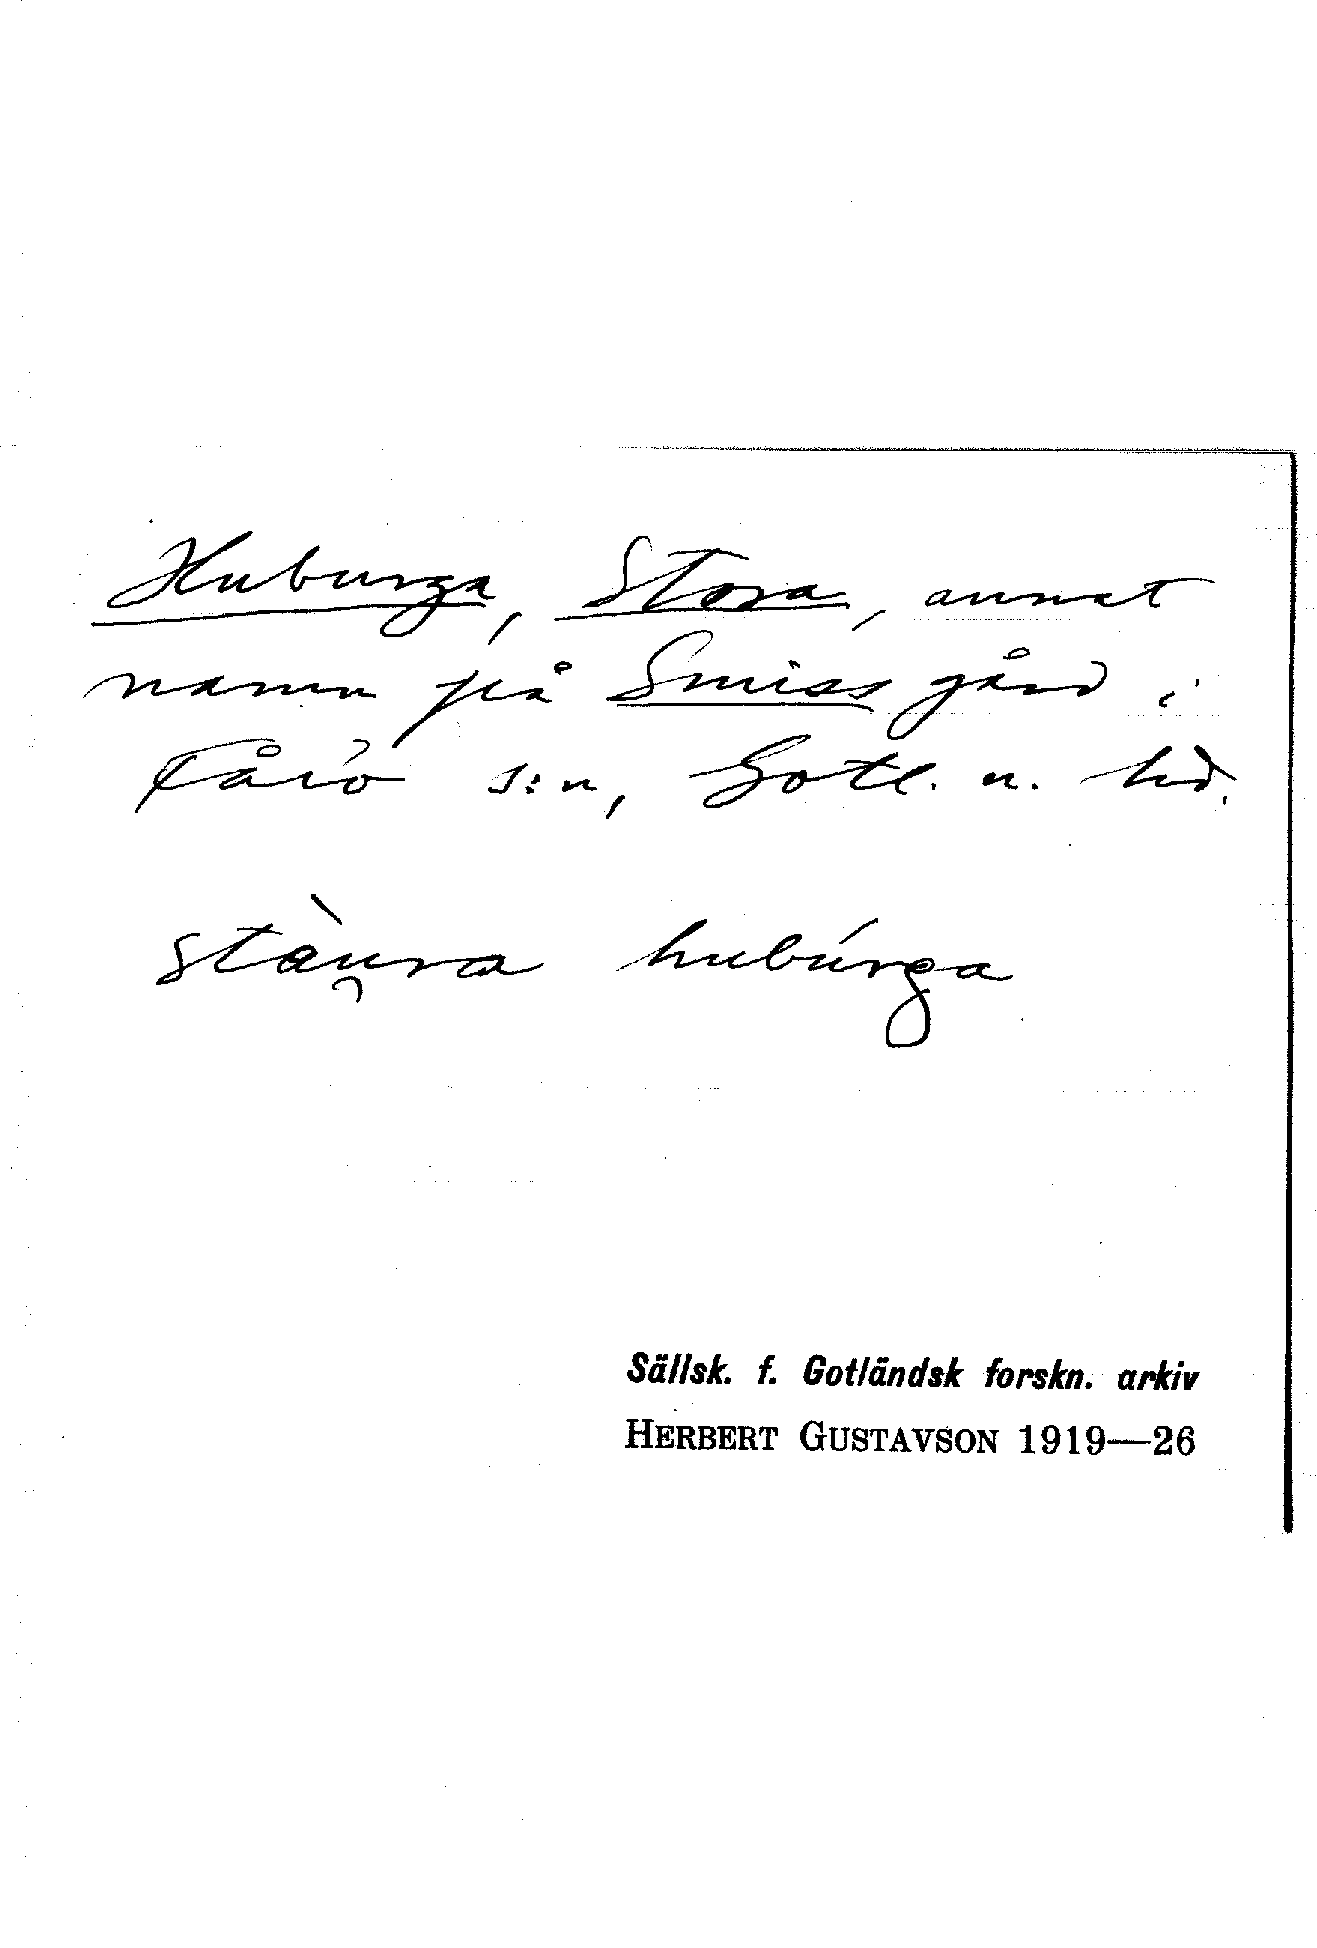 Huburga, Stora, annat
namn på Smiss gård i
Fårö s:n, Gotl. n. hd.
stàu̯ra hubúrga
Sällsk. f. Gotländsk forskn. arkiv
HERBERT GUSTAVSON 1919—26